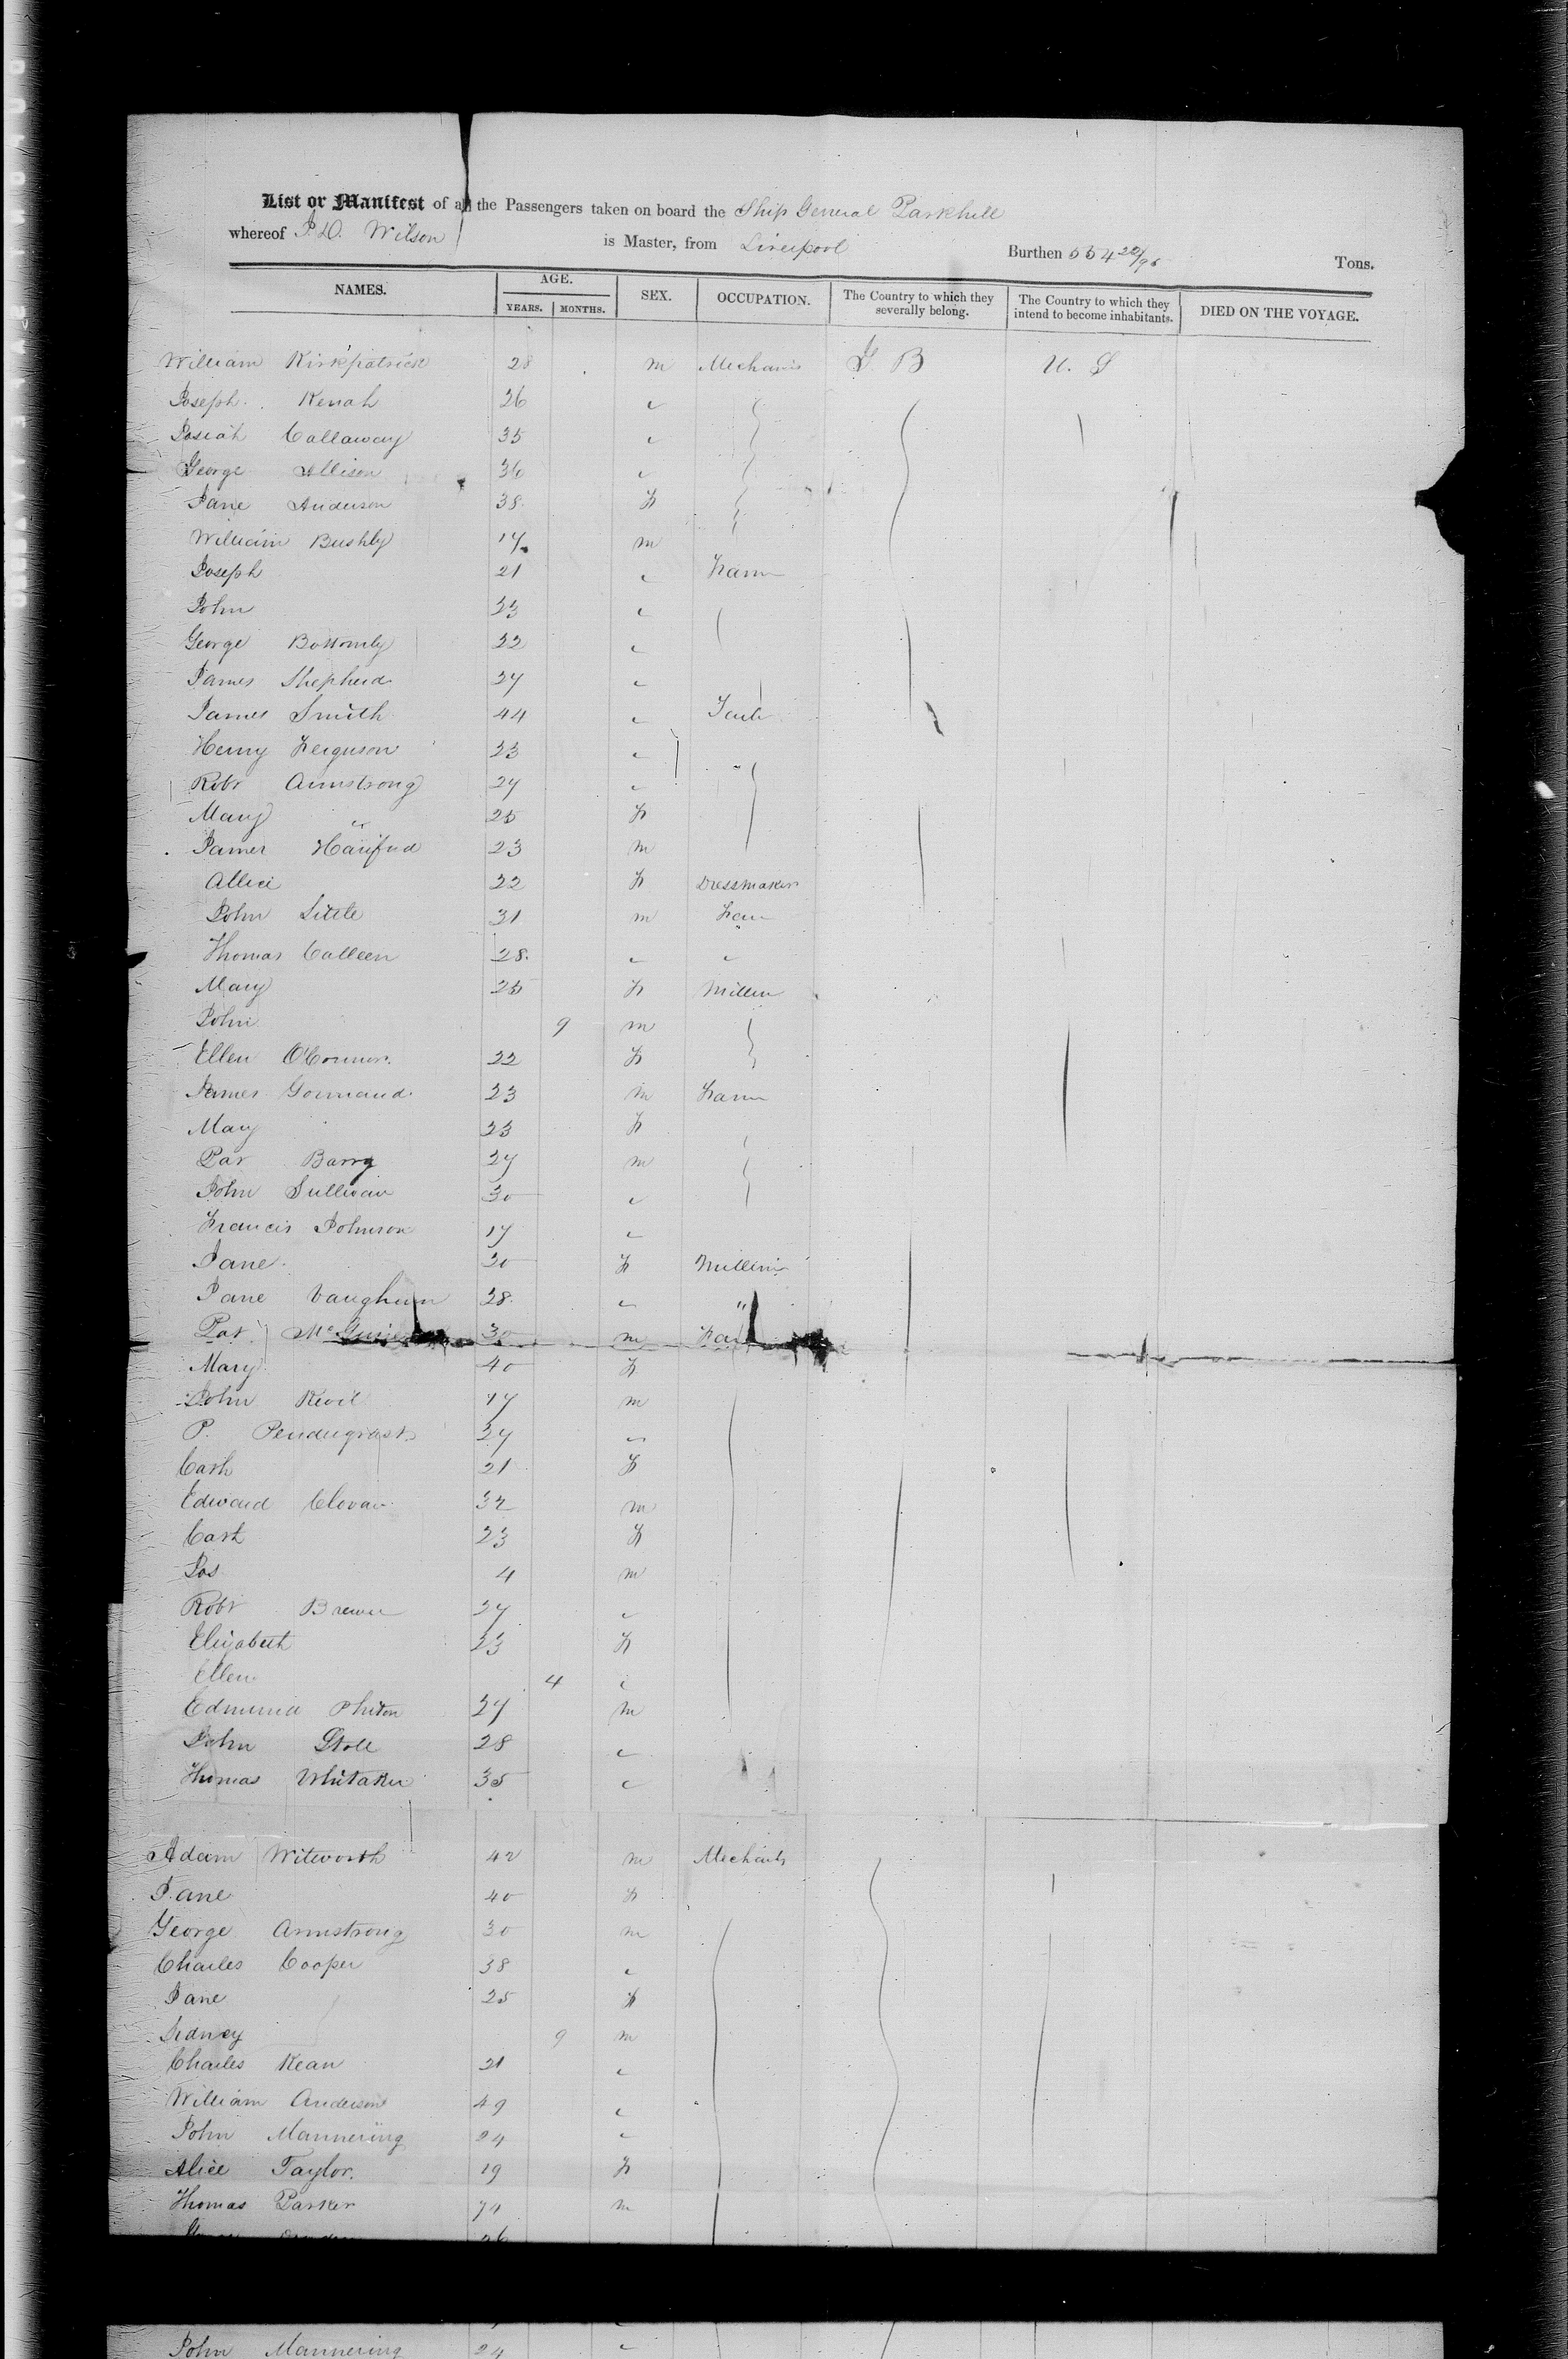 List or Manifest of all the Passengers taken on board the Ship General Parkhill
whereof J. D. Wilson is Master, from Liverpool Burthen 554 20/95 Tons.
NAMES. AGE. SEX. OCCUPATION. The Country to which they severally belong. The Country to which they intend to become inhabitants. DIED ON THE VOYAGE.
YEARS. MONTHS.
William Kirkpatrick 28 m Mechanic G. B U. S
Joseph Kenah 26 "
Josiah Callaway 35 "
George Allison 36 "
Jane Anderson 38 F
William Bushby 17 m
Joseph 21 " Farm
John 23 "
George Bottomly 22 "
James Shepherd 27 "
James Smith 44 "
Henry Ferguson 23 "
Robt Armstrong 27 "
Mary " 25 F
James 23 m
Allice 22 F Dressmaker
John Little 31 m Farm
Thomas Calleen 28 " "
Mary 25 F Milliner
John 9 m
Ellen O'Connor. 22 F
James 23 m Farm
Mary 23 F
Pat Barry 27 m
John Sullivan 30 "
Francis Johnson 17 "
Jane 30 F Milliner
Jane Vaughan 28 " "
Pat 30 m Farm
Mary 40 F
John 17 m
P. Pendergrast 27 "
Cath 21 F
Edward 32 m
Cath 23 F
Jos 4 m
Robt Brewer 27 "
Elizabeth 23 F
Ellen 4 "
Edmund 27 m
John Stott 28 "
Thomas Whitaker 35 "
Adam Witworth 42 m Mechanic
Jane 40 F
George Armstrong 30 m
Charles Cooper 38 "
Jane 25 F
Sidney 9 m
Charles Kean 21 "
William Anderson 49 "
John Mannering 24 "
Alice Taylor. 19 F
Thomas Parker 71 m
26
John Mannering 24 "